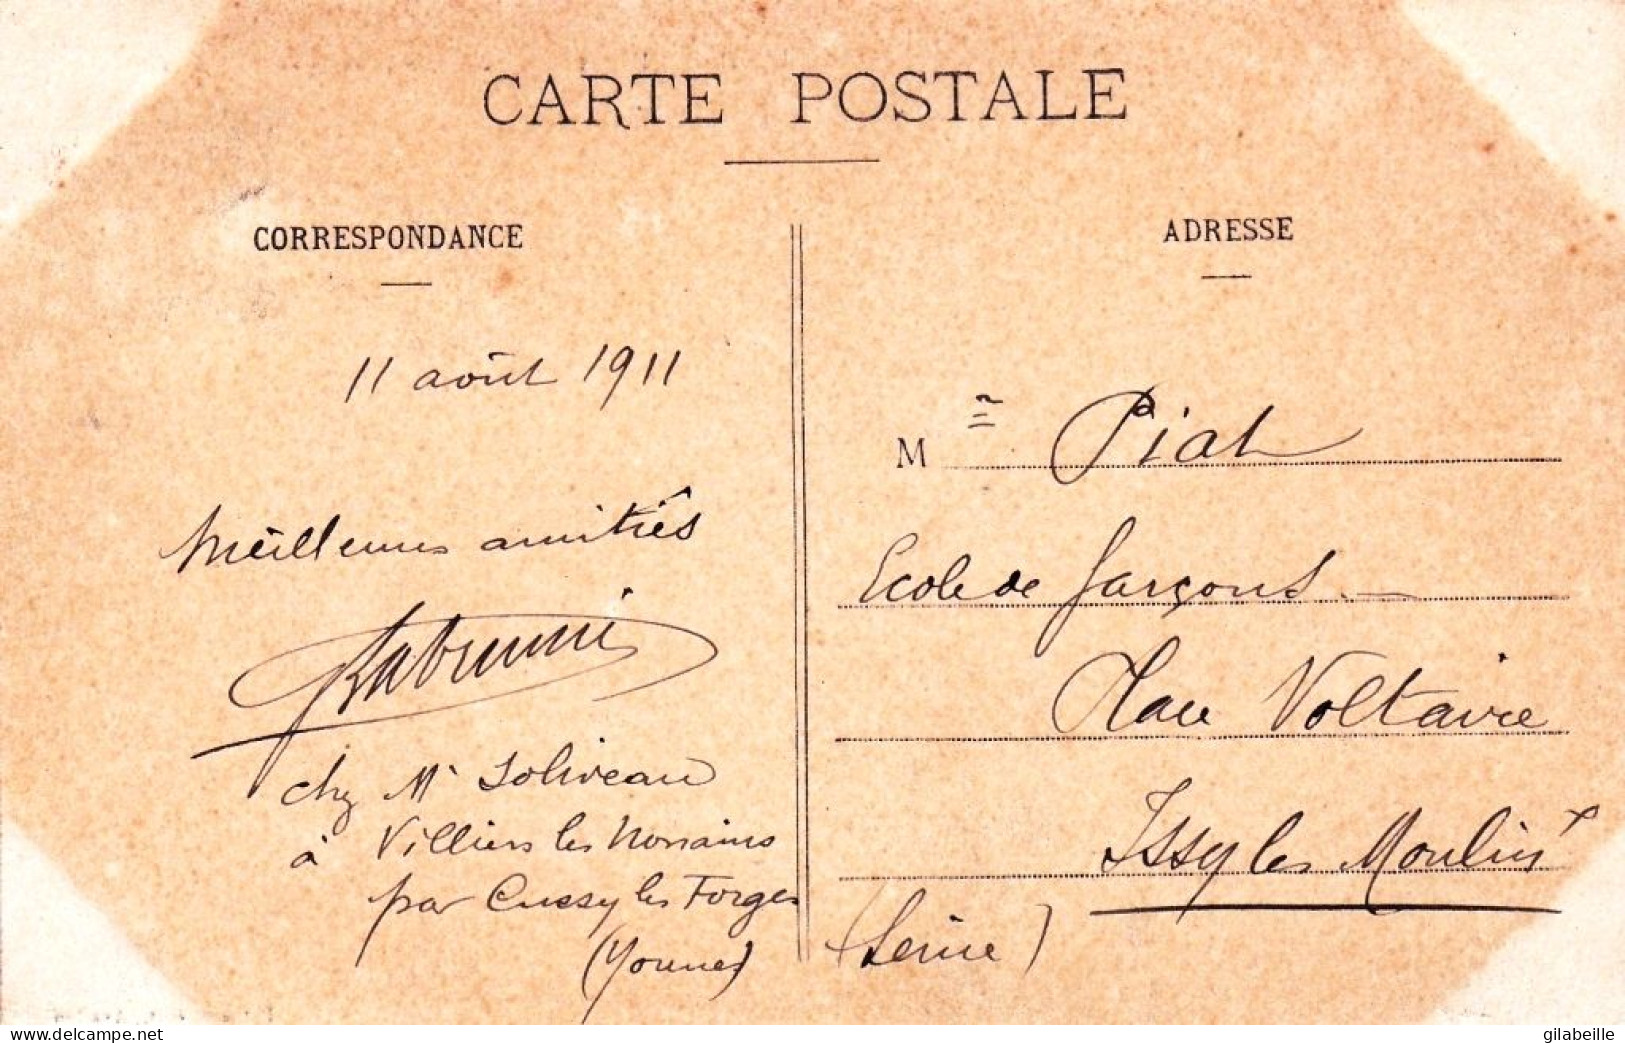 CARTE POSTALE
CORRESPONDANCE
11 août 1911
Meilleures amitiés
chez Mr Soliveau
à Villiers les Nonains
par Cussy les Forges
(Yonne)
ADRESSE
M Piat
Ecole de garçons
Place Voltaire
Issy les Moulinx
(Seine)
https://www.delcampe.net
gilabeille